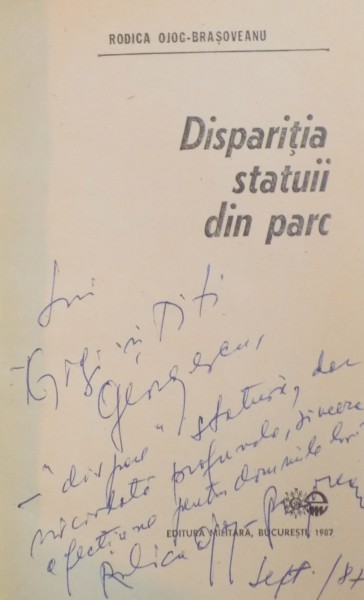 RODICA OJOG-BRAȘOVEANU
Dispariția
statuii
din parc
Lui
Gigi și Titi
Georgescu,
"dispare" statuia, dar
niciodată profunda, sincera
afecțiune pentru domniile lor
Rodica Ojog-Brașoveanu
EDITURA MILITARĂ, BUCUREȘTI, 1987
Sept./87